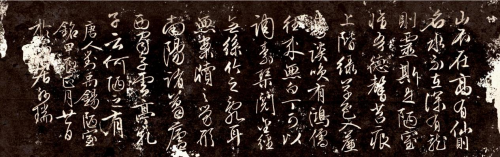 山不在高有仙則
名水不在深有龍
則靈斯是陋室
惟吾德馨苔痕
上階綠草色入簾
青談笑有鴻儒
往來無白丁可以
調素琴閱金經
無絲竹之亂耳
無案牘之勞形
南陽諸葛廬
西蜀子雲亭孔
子云何陋之有
唐人劉禹錫陋室
銘 正月廿日